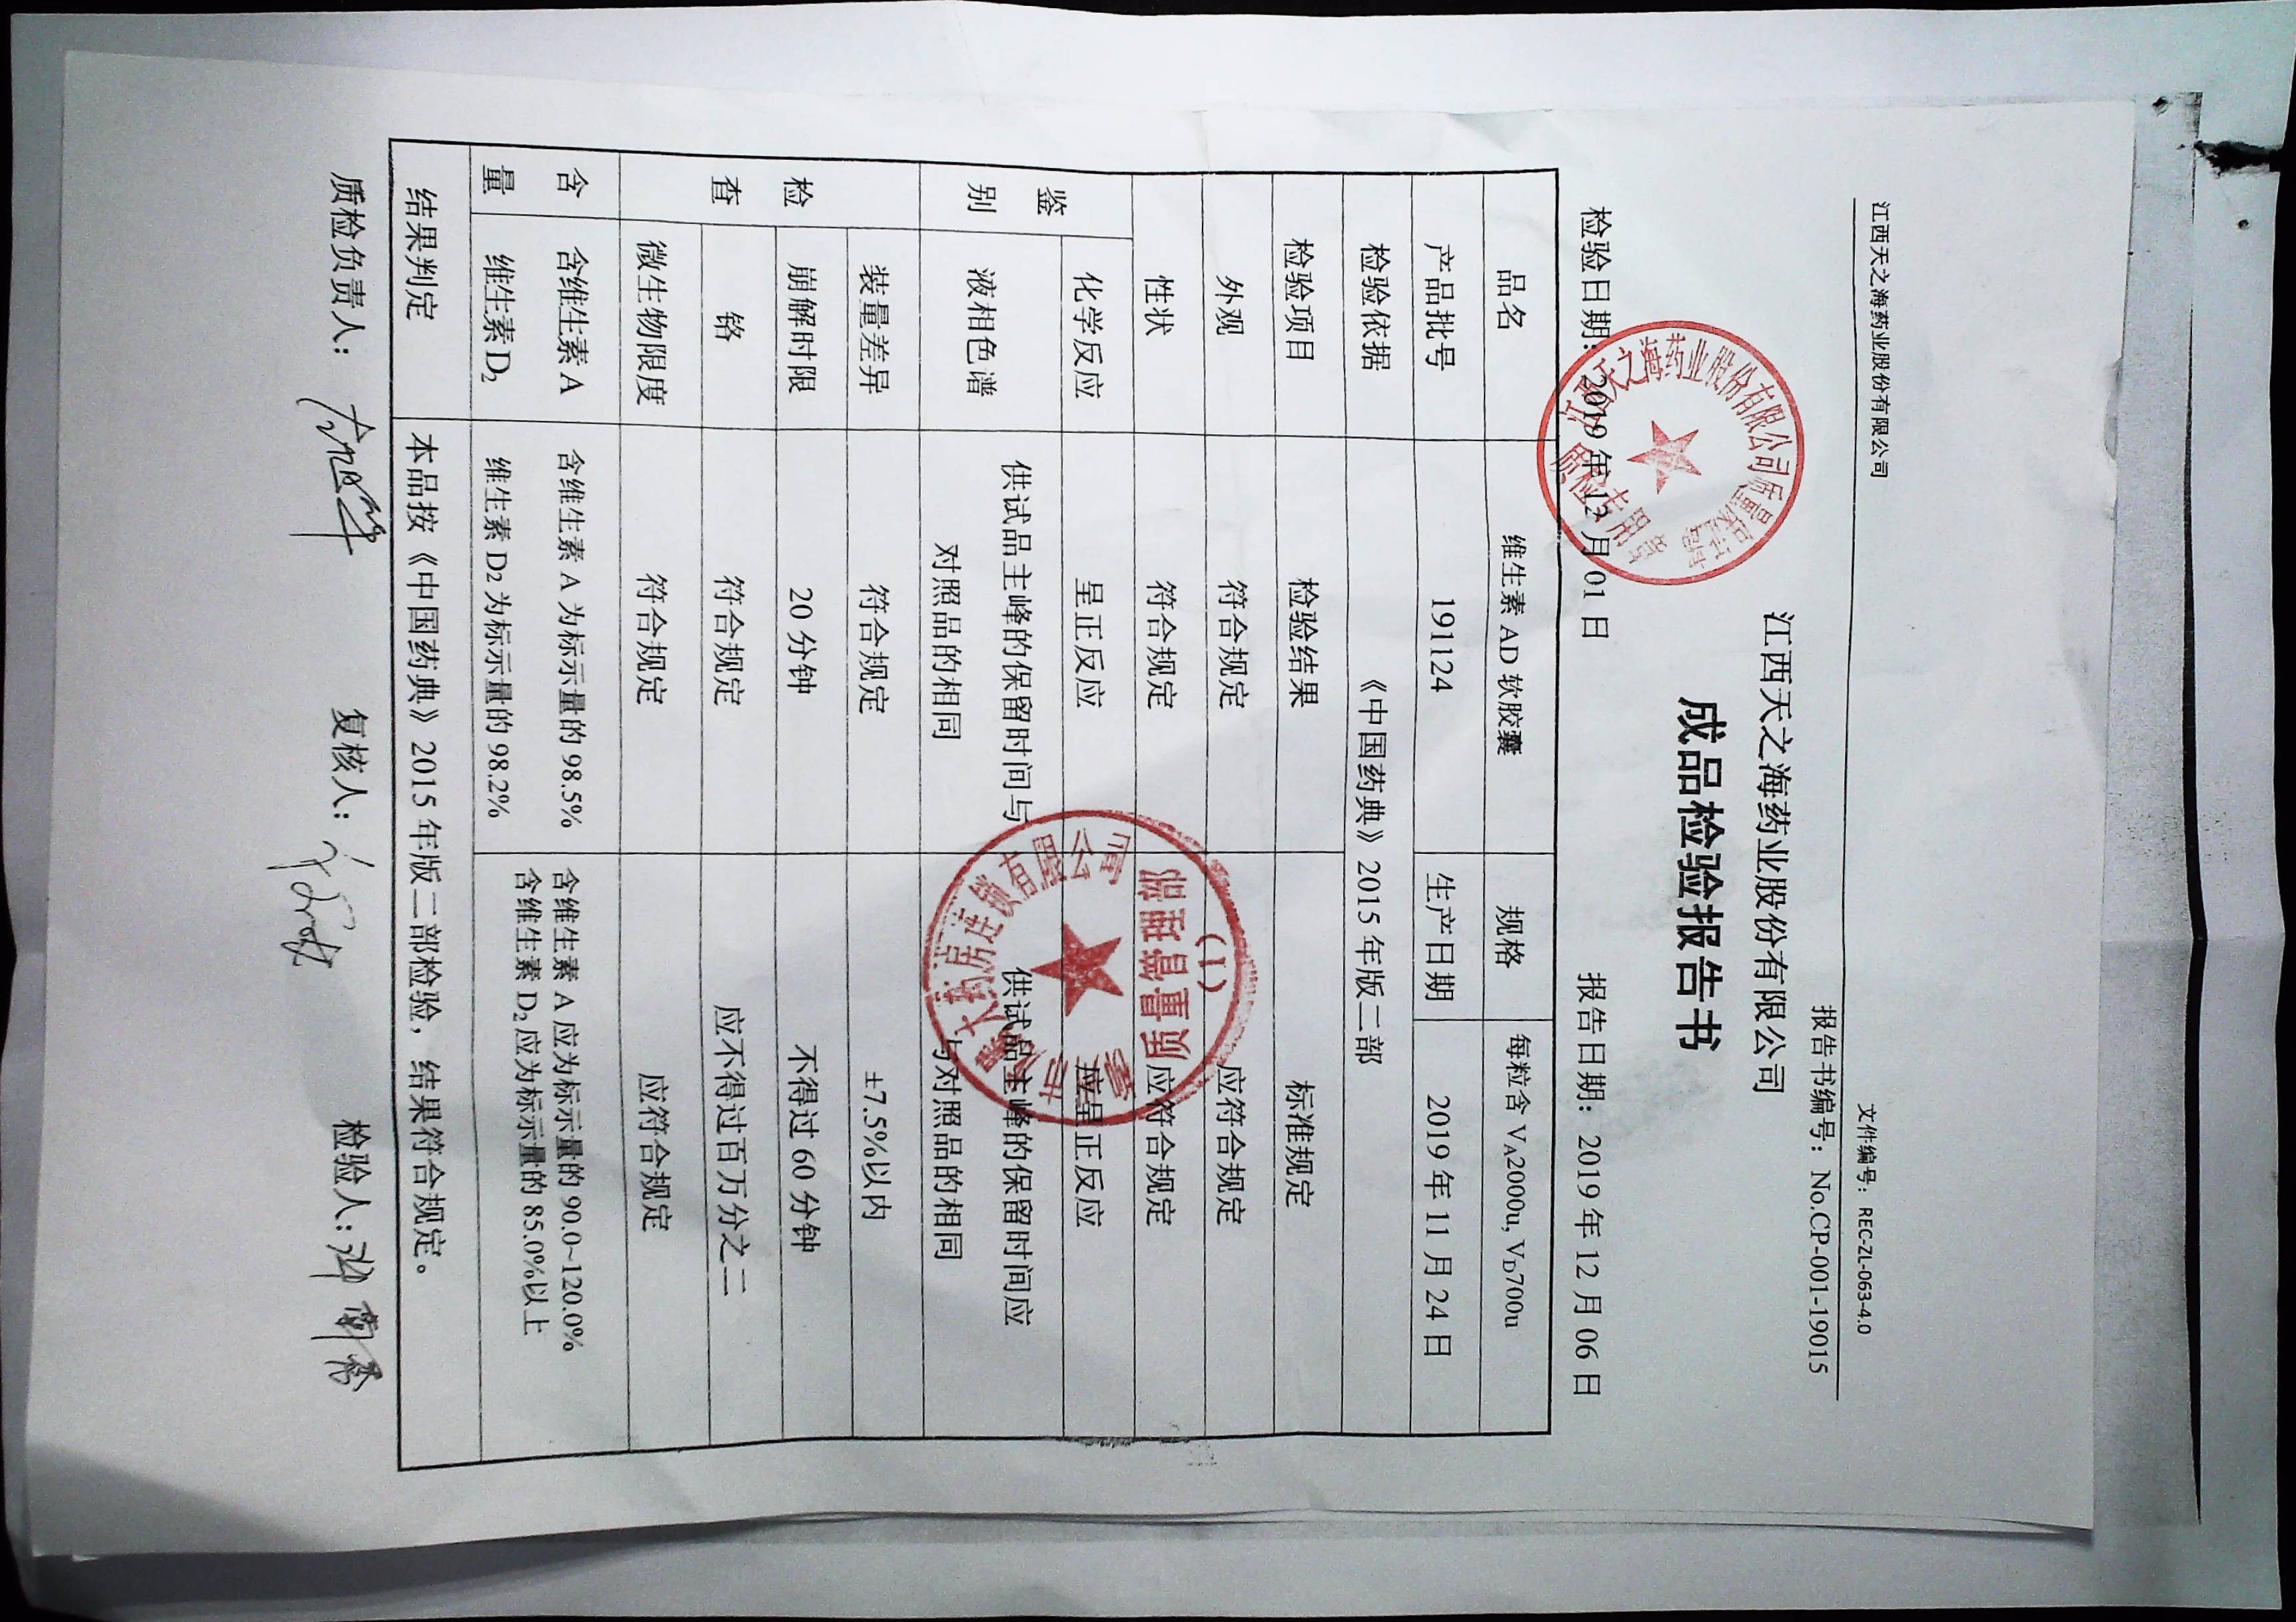 江西天之海药业股份有限公司 文件编号：REC-ZL-063-4.0
报告书编号：No.CP-001-19015
江西天之海药业股份有限公司
成品检验报告书
检验日期：2019年12月01日 报告日期：2019年12月06日
江西天之海药业股份有限公司质量保证部
质检专用章
品名 维生素AD软胶囊 规格 每粒含 VA2000u, VD700u
产品批号 191124 生产日期 2019年11月24日
检验依据 《中国药典》2015年版二部
检验项目 检验结果 标准规定
外观 符合规定 应符合规定
性状 符合规定 应符合规定
鉴别 化学反应 呈正反应 应呈正反应
液相色谱 供试品主峰的保留时间与 供试品主峰的保留时间应
对照品的相同 与对照品的相同
检查 装量差异 符合规定 ±7.5%以内
崩解时限 20分钟 不得过60分钟
铬 符合规定 应不得过百万分之二
微生物限度 符合规定 应符合规定
含量 含维生素A 含维生素A为标示量的98.5% 含维生素A应为标示量的90.0~120.0%
维生素D₂ 维生素D2为标示量的98.2% 含维生素D₂应为标示量的85.0%以上
结果判定 本品按《中国药典》2015年版二部检验，结果符合规定。
大药房连锁有限公司
质量管理部
(1)
质检负责人： 复核人： 检验人：